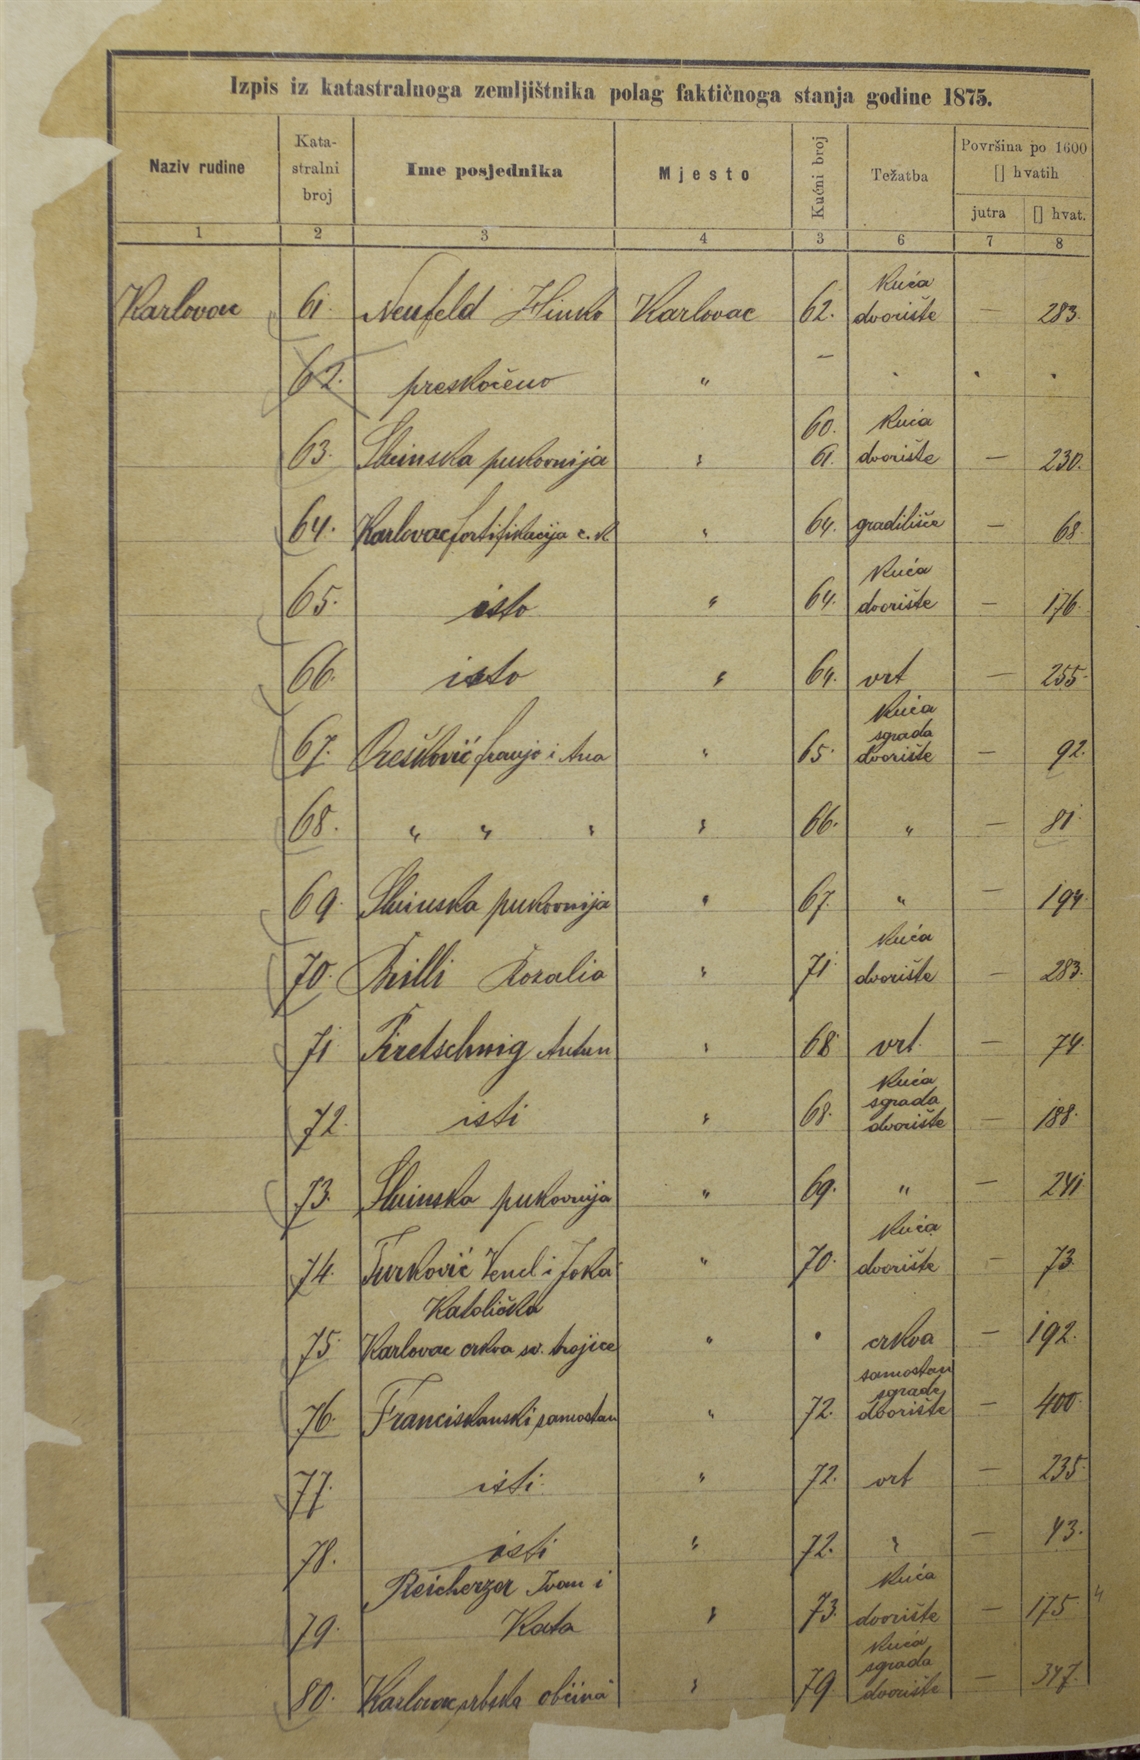 Izpis iz katastralnoga zemljištnika polag faktičnoga stanja godine 1875.
Naziv rudine Kata-stralni broj Ime posjednika Mjesto Kućni broj Težatba Površina po 1600 [] hvatih
jutra [] hvat.
1 2 3 4 3 6 7 8
Kuća
Karlovac 61. Neufeld Hinko Karlovac 62. dvorište — 283.
62. preskočeno " —
60. Kuća
63. Sluinska pukovnija " 61. dvorište — 230.
64. Karlovac fortifikacija c. k. " 64. gradilišće — 68.
Kuća
65. isto " 64. dvorište — 176.
66. isto " 64. vrt — 255.
Kuća
sgrada
67. Orešković Franjo i Ana " 65. dvorište — 92.
68. " " " " 66. " — 81.
69. Sluinska pukovnija " 67. " — 194.
Kuća
70. Rozalia " 71. dvorište — 283.
71. Antun " 68 vrt — 74.
Kuća
sgrada
72. isti " 68. dvorište — 188.
73. Sluinska pukovnija " 69. " — 241
Kuća
74. Turković Vencl i Joka " 70. dvorište — 73.
Katolička
75. Karlovac crkva sv. trojice " crkva — 192.
samostan
sgrade
76. Franciskanski samostan " 72. dvorište — 400.
77. isti " 72. vrt — 235.
78. isti " 72. " — 43.
Reicherzer Ivan i Kuća
79. Kata " 73. dvorište — 175 4
Kuća
sgrada
80. Karlovac, srbska občina " 79 dvorište — 347.